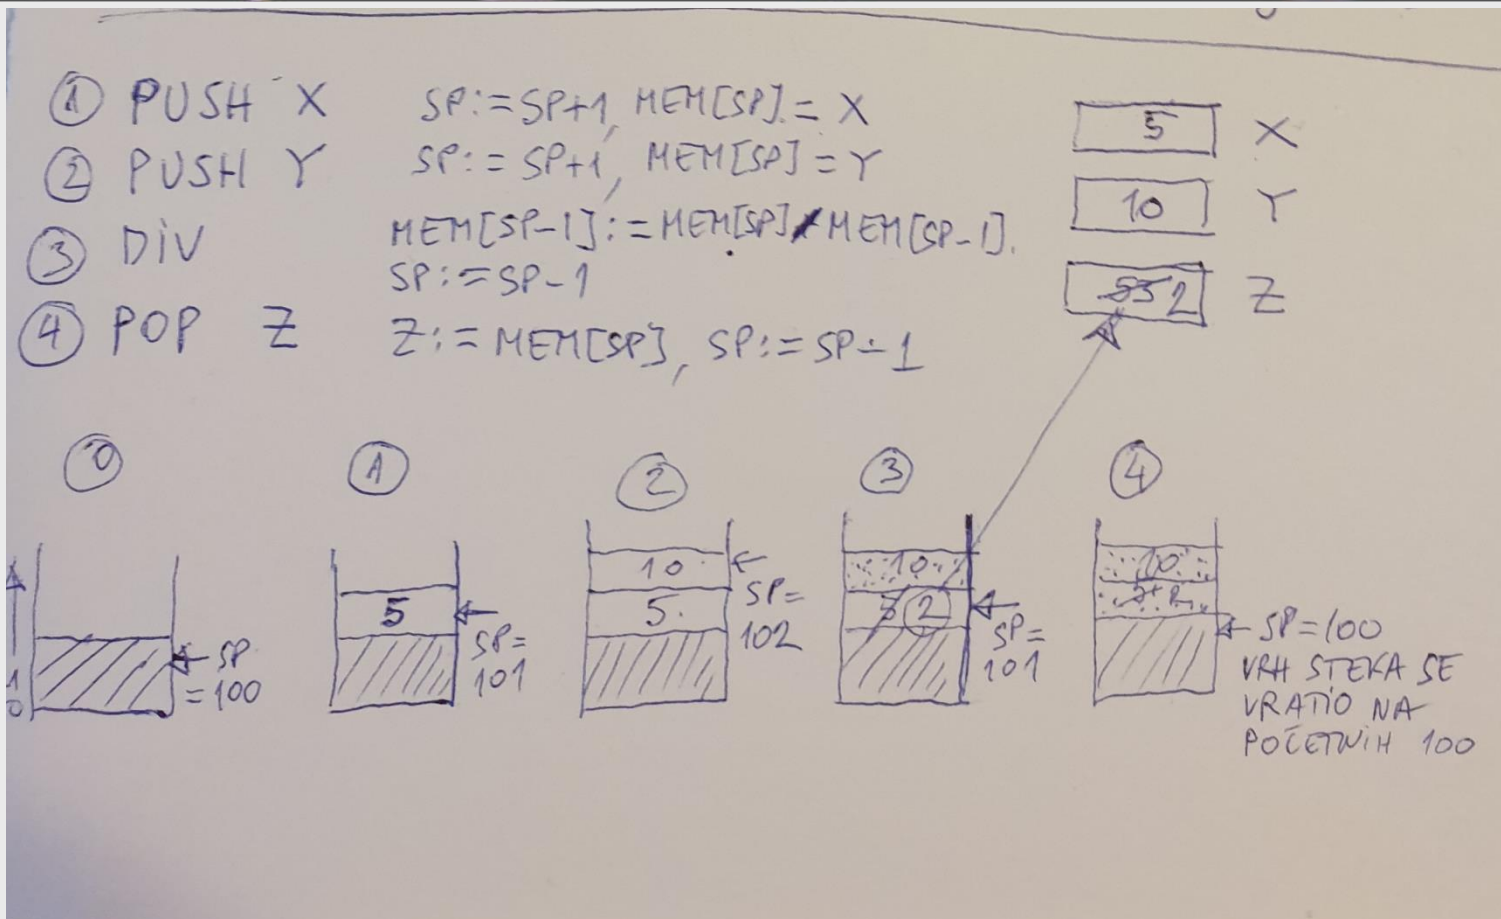 ① PUSH X SP:=SP+1, MEM[SP]:=X
② PUSH Y SP:=SP+1, MEM[SP]=Y
③ DIV MEM[SP-1]:=MEM[SP]/MEM[SP-1].
SP:=SP-1
④ POP Z Z:=MEM[SP], SP:=SP-1
5 X
10 Y
2 Z
0
SP
=100
1
0
①
5
SP=
101
②
10
5
SP=
102
③
10
2
SP=
101
④
10
2
SP=100
VRH STEKA SE
VRATIO NA
POČETNIH 100